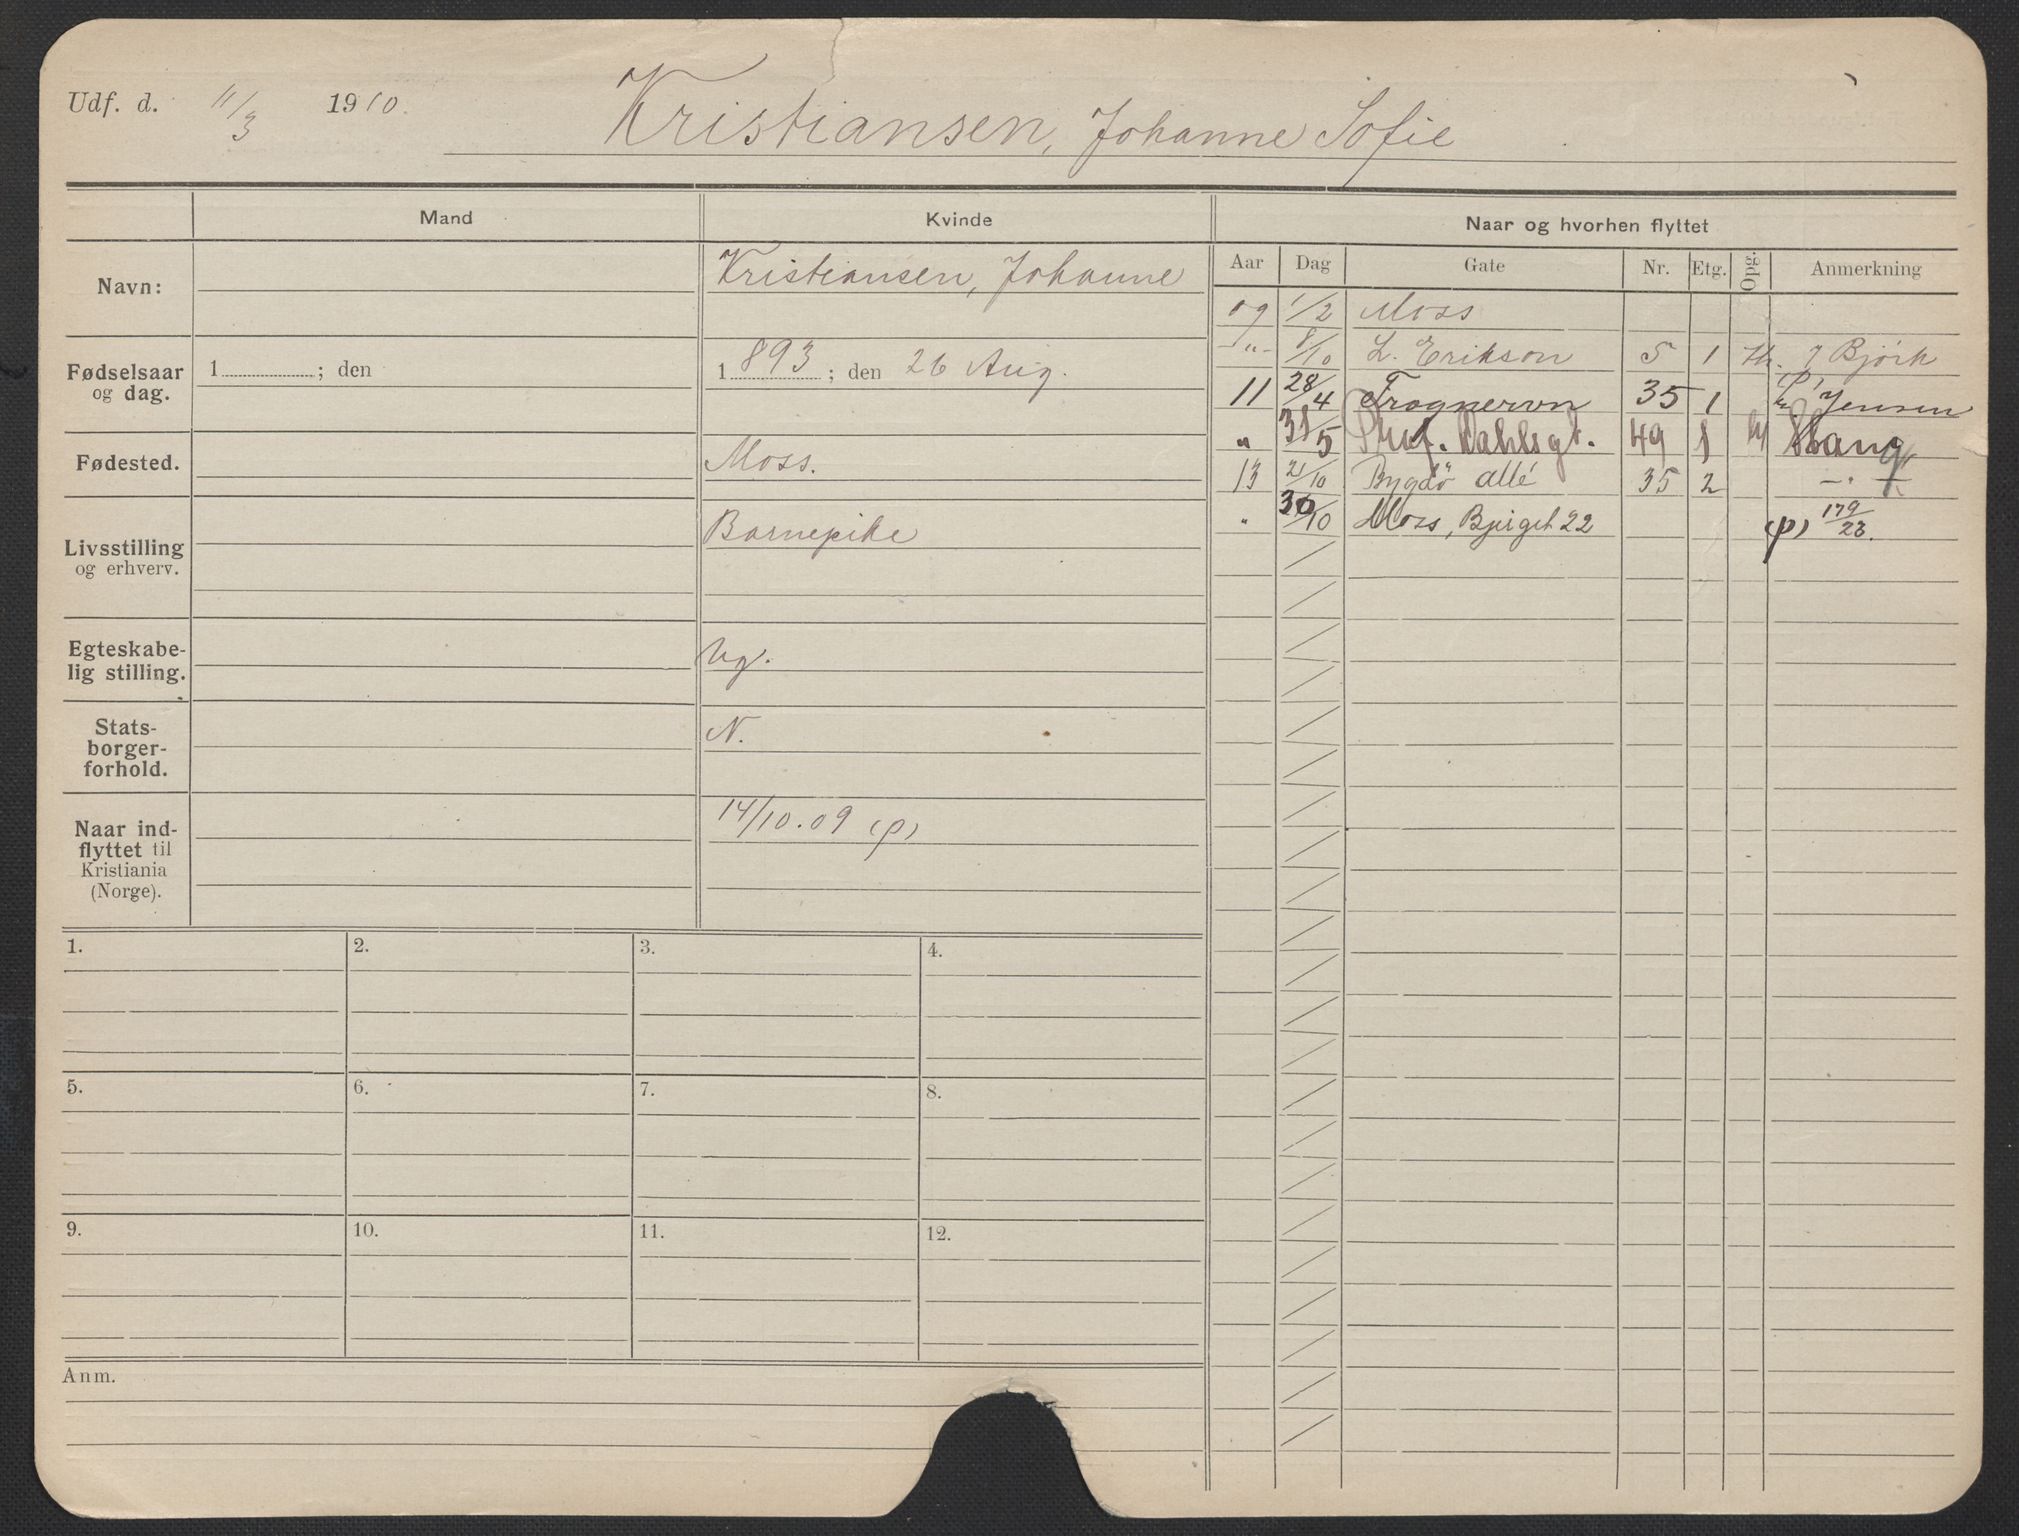 Udf. d. 11/3 1910. Kristiansen, Johanne Sofie
Mand Kvinde Naar og hvorhen flyttet
Aar Dag Gate Nr. Etg. Opg. Anmerkning
Navn: Kristiansen, Johanne
Fødselsaar og dag. 1 ; den 1893 ; den 26 Aug.
Fødested. Moss.
Livsstilling og erhverv. Barnepike
Egteskabe-
lig stilling. Ug.
Stats-
borger-
forhold. N.
Naar ind-
flyttet til
Kristiania
(Norge). 14/10.09 (p)
09 1/2 Moss
-"- 8/10 L. Erikson 5 1 Th. J Bjørk
11 28/4 Frognervn 35 1 Jensen
" 31/5 Prof. Dahlsgt. 49 1 Stang
13 21/10 Bygdø allé 35 2 -"-
" 30/10 Moss, Bjerget 22 (p) 179/23.
1. 2. 3. 4.
5. 6. 7. 8.
9. 10. 11. 12.
Anm.